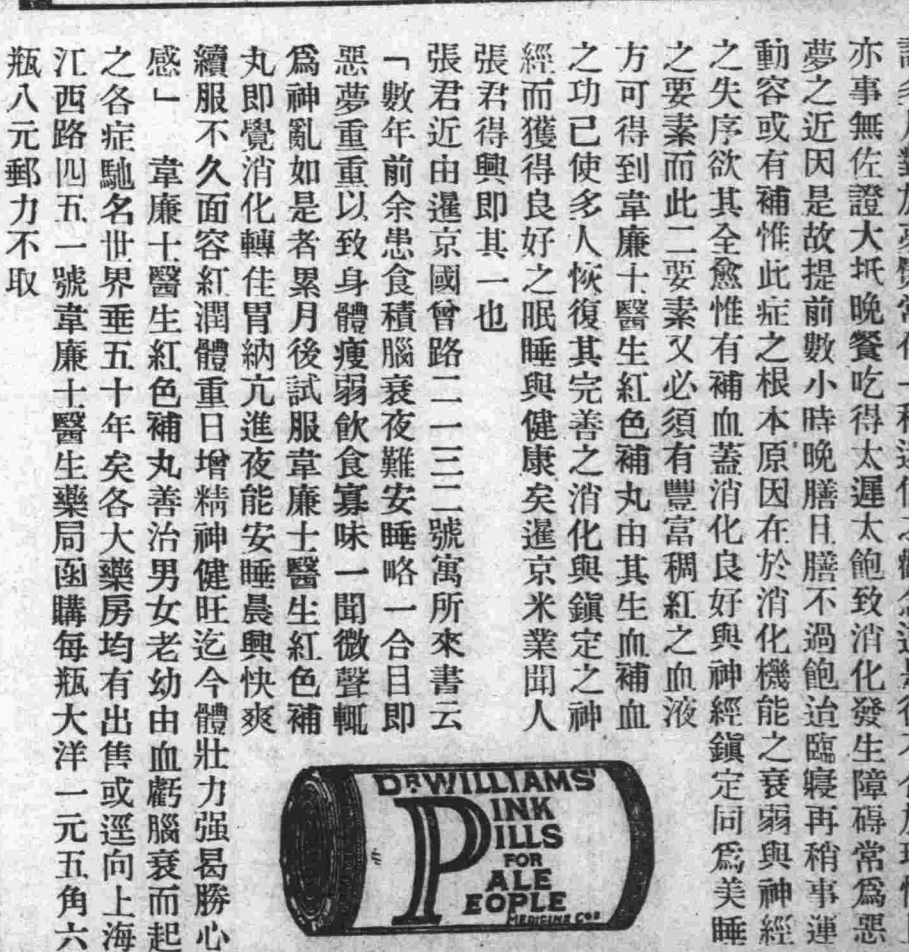 亦事無佐證大抵晚餐吃得太遲太飽致消化發生障碍常爲惡
夢之近因是故提前數小時晚膳且膳不過飽迨臨寢再稍事運
動容或有補惟此症之根本原因在於消化機能之衰弱與神經
之失序欲其全愈惟有補血蓋消化良好與神經鎭定同爲美睡
之要素而此二要素又必須有豐富稠紅之血液
方可得到韋廉士醫生紅色補丸由其生血補血
之功已使多人恢復其完善之消化與鎭定之神
經而獲得良好之眠睡與健康矣暹京米業聞人
張君得興即其一也
張君近由暹京國曾路二一三二號寓所來書云
「數年前余患食積腦衰夜難安睡略一合目即
惡夢重重以致身體瘦弱飲食寡味一聞微聲輒
爲神亂如是者累月後試服韋廉士醫生紅色補
丸即覺消化轉佳胃納亢進夜能安睡晨興快爽
續服不久面容紅潤體重日增精神健旺迄今體壯力强曷勝心
感」 韋廉士醫生紅色補丸善治男女老幼由血虧腦衰而起
之各症馳名世界垂五十年矣各大藥房均有出售或逕向上海
江西路四五一號韋廉士醫生藥局函購每瓶大洋一元五角六
瓶八元郵力不取
DR WILLIAMS'
PINK
PILLS
FOR
PALE
PEOPLE
MEDICINE Co